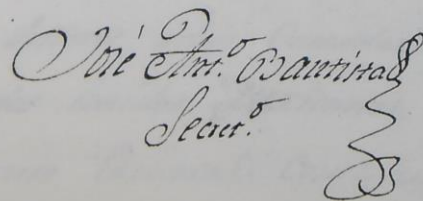 José Ant.º Bautista
Secret.º